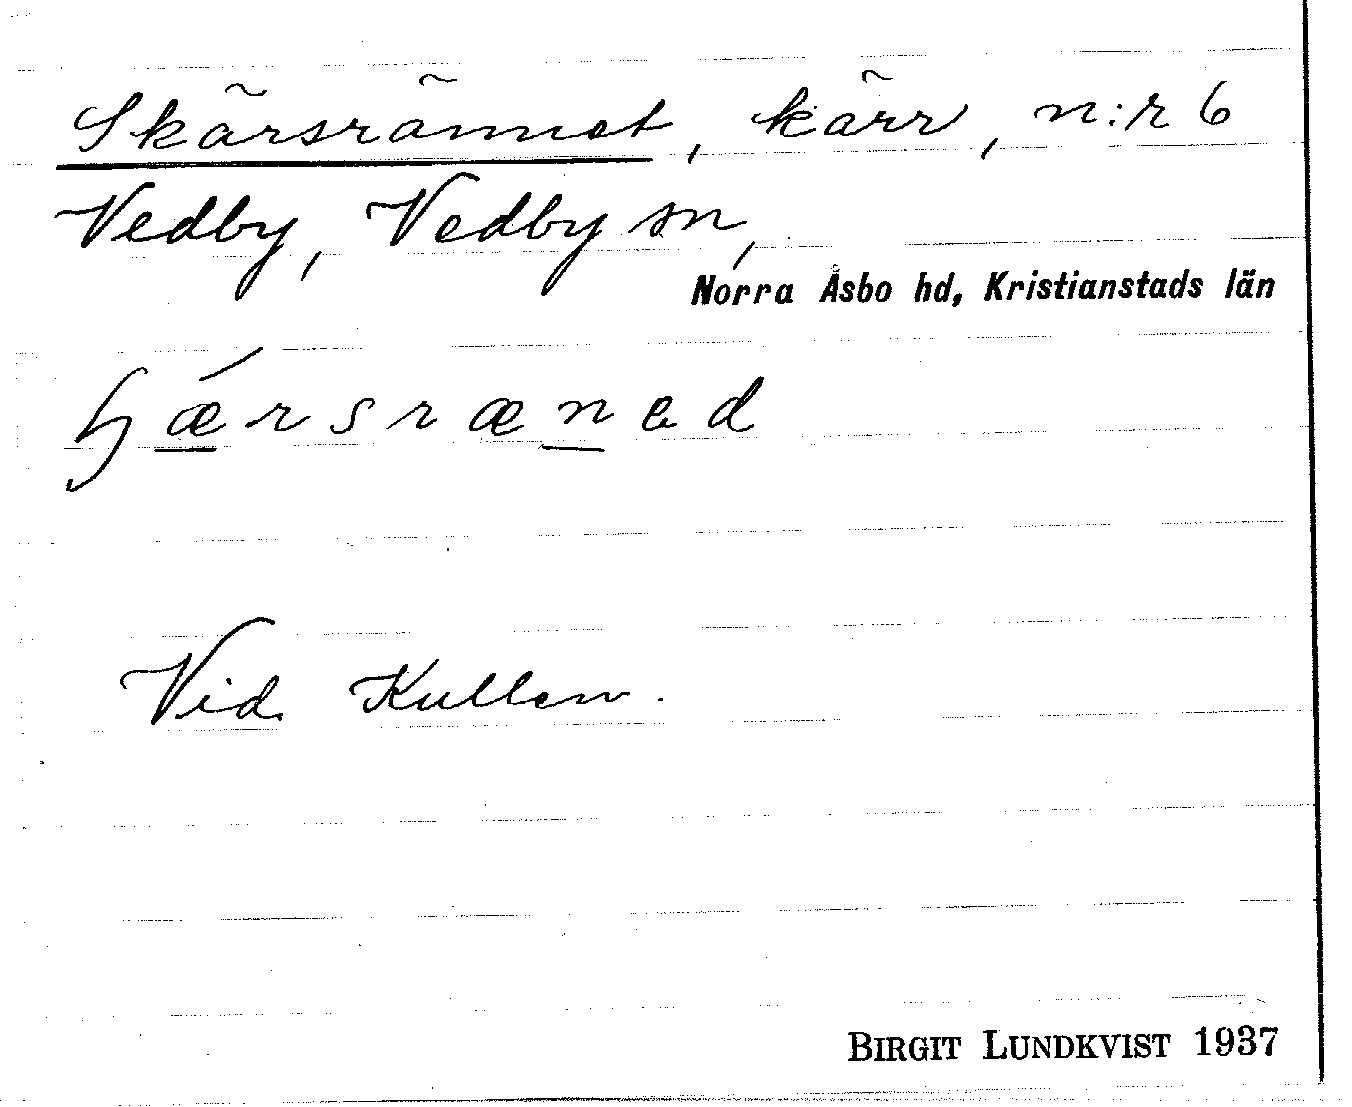 Skärsrännet, kärr, n:r 6
Vedby, Vedby sn,
Norra Åsbo hd, Kristianstads län
ɧǽrsræned
Vid Kullen.
BIRGIT LUNDKVIST 1937